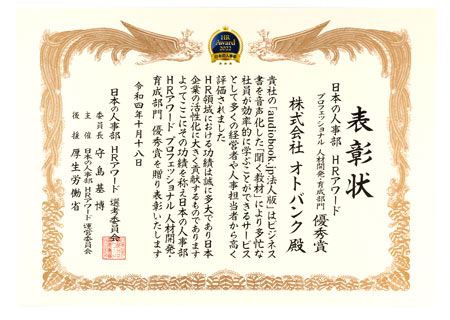 HR
Award
2022
日本の人事部
表彰状
日本の人事部 HRアワード
プロフェッショナル 人材開発・育成部門 優秀賞
株式会社 オトバンク 殿
貴社の「audiobook.jp法人版」はビジネス
書を音声化した「聞く教材」により多忙な
社員が効率的に学ぶことができるサービス
として多くの経営者や人事担当者から高く
評価されました
HR領域における功績は誠に多大であり日本
企業の活性化に大きく貢献するものであります
よってここにその功績を称え日本の人事部
HRアワード プロフェッショナル 人材開発・
育成部門 優秀賞を贈り表彰いたします
令和四年十月十八日
日本の人事部 HRアワード 選考委員会
委員長 守島基博
主催 日本の人事部「HRアワード」運営委員会
後援 厚生労働省